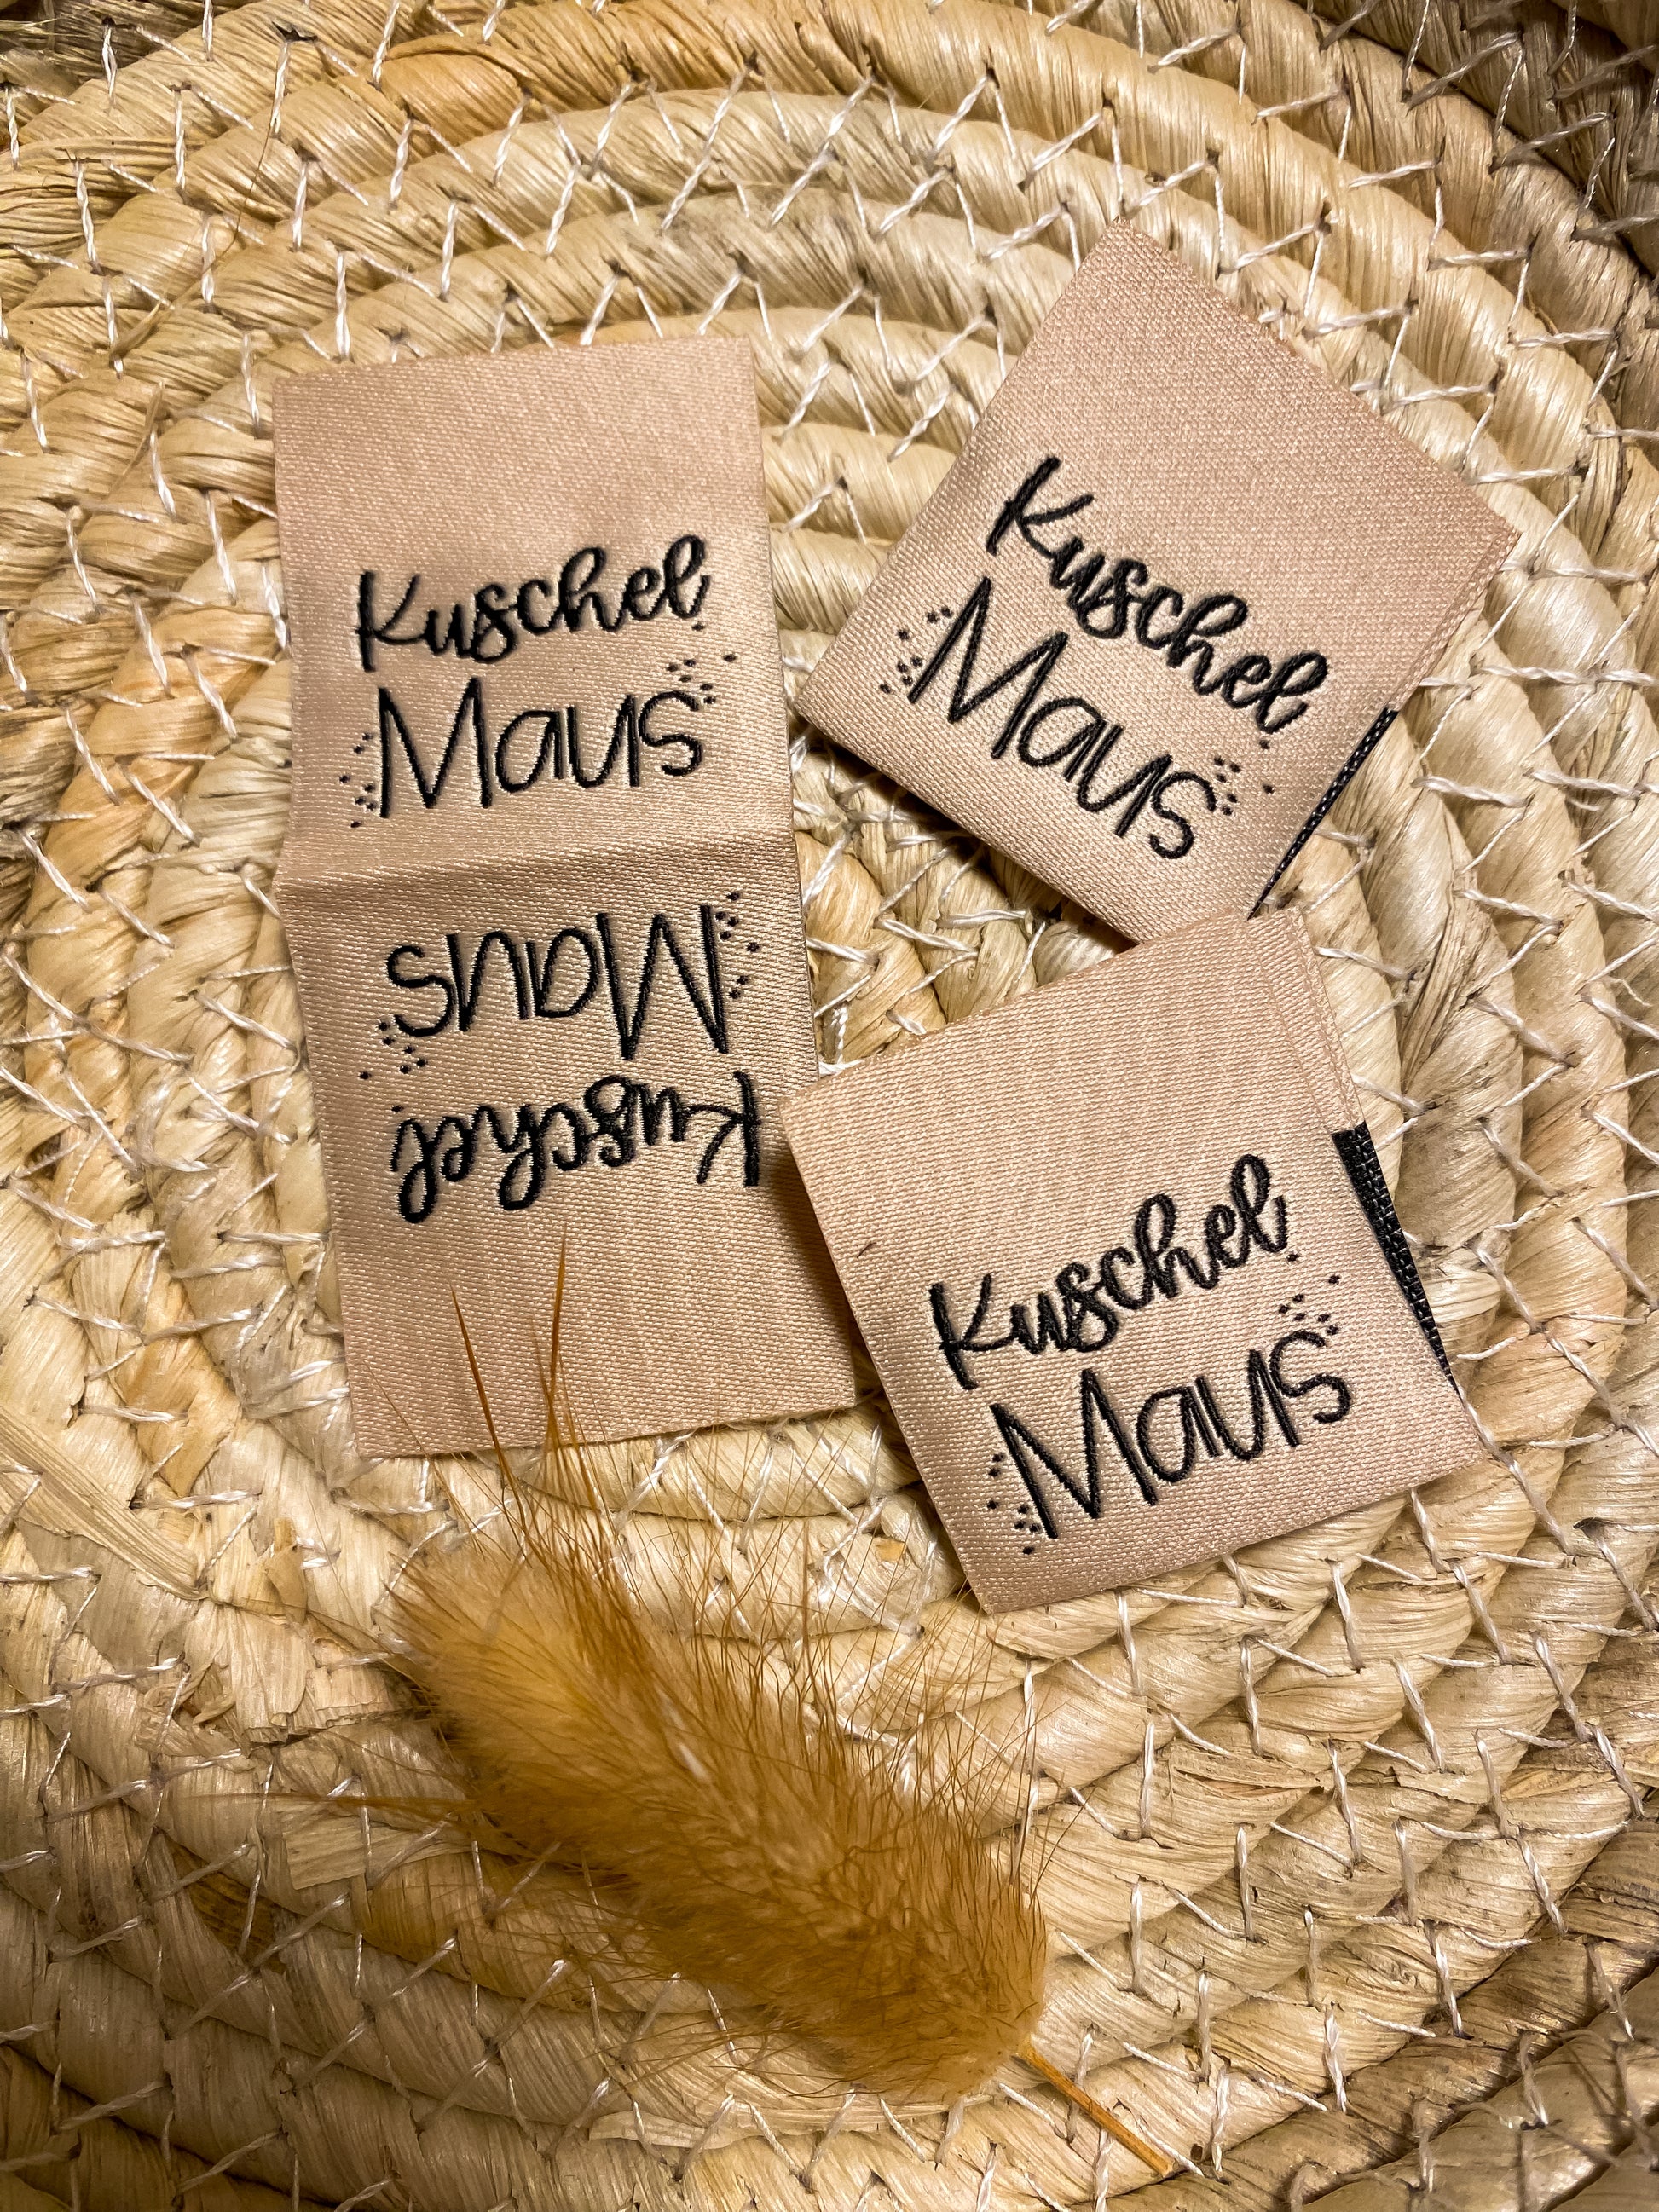 Kuschel
Maus
Maus
Kuschel
Kuschel
Maus
Kuschel
Maus